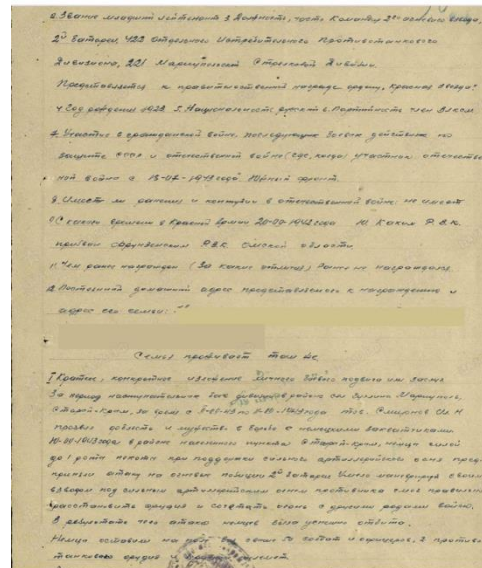 2. Звание младший лейтенант 3. Должность, часть Командир 2го огневого взвода,
2й Батареи, 422 Отдельного Истребительного Противотанкового
Дивизиона, 221 Мариупольской Стрелковой Дивизии.
Представляется к правительственной награде ордену, Красная Звезда"
4. Год рождения 1923 5. Национальность русский 6. Партийность член ВЛКСМ
7. Участие в гражданской войне, последующих боевых действиях по
защите СССР и отечественной войне (где, когда) участник отечествен
ной войны с 1943 года Южный фронт.
9. Имеет ли ранения и контузии в отечественной войне: не имеет
С какого времени в Красной Армии 1942 года Каким Р.В.К.
призван Р.В.К. Омской области
11. Чем ранее награжден (За какие отличия) Ранее не награждался
12. Постоянный домашний адрес представляемого к награждению и
адрес его семьи:
Семья проживает там же
I Краткое, конкретное изложение личного боевого подвига или заслуг
За период наступательных боев дивизии в районе Мариуполь,
Старый-Крым, за время с 1943 года тов. Смирнов
проявил доблесть и мужество в борьбе с немецкими захватчиками
1943 года в районе населенного пункта Старый-Крым, немцы силой
до 1 роты пехоты при поддержке сильного артиллерийского огня пред
приняли атаку на огневые позиции 2й Батареи Умело маневрируя своим
взводом под сильным артиллерийским огнем противника сумел правильно
расставить орудия и сочетать огонь с другими родами войск.
В результате чего атака немцев была успешно отбита.
Немцы оставили на поле боя солдат и офицеров, 2 противо
танковых орудия и пулемет